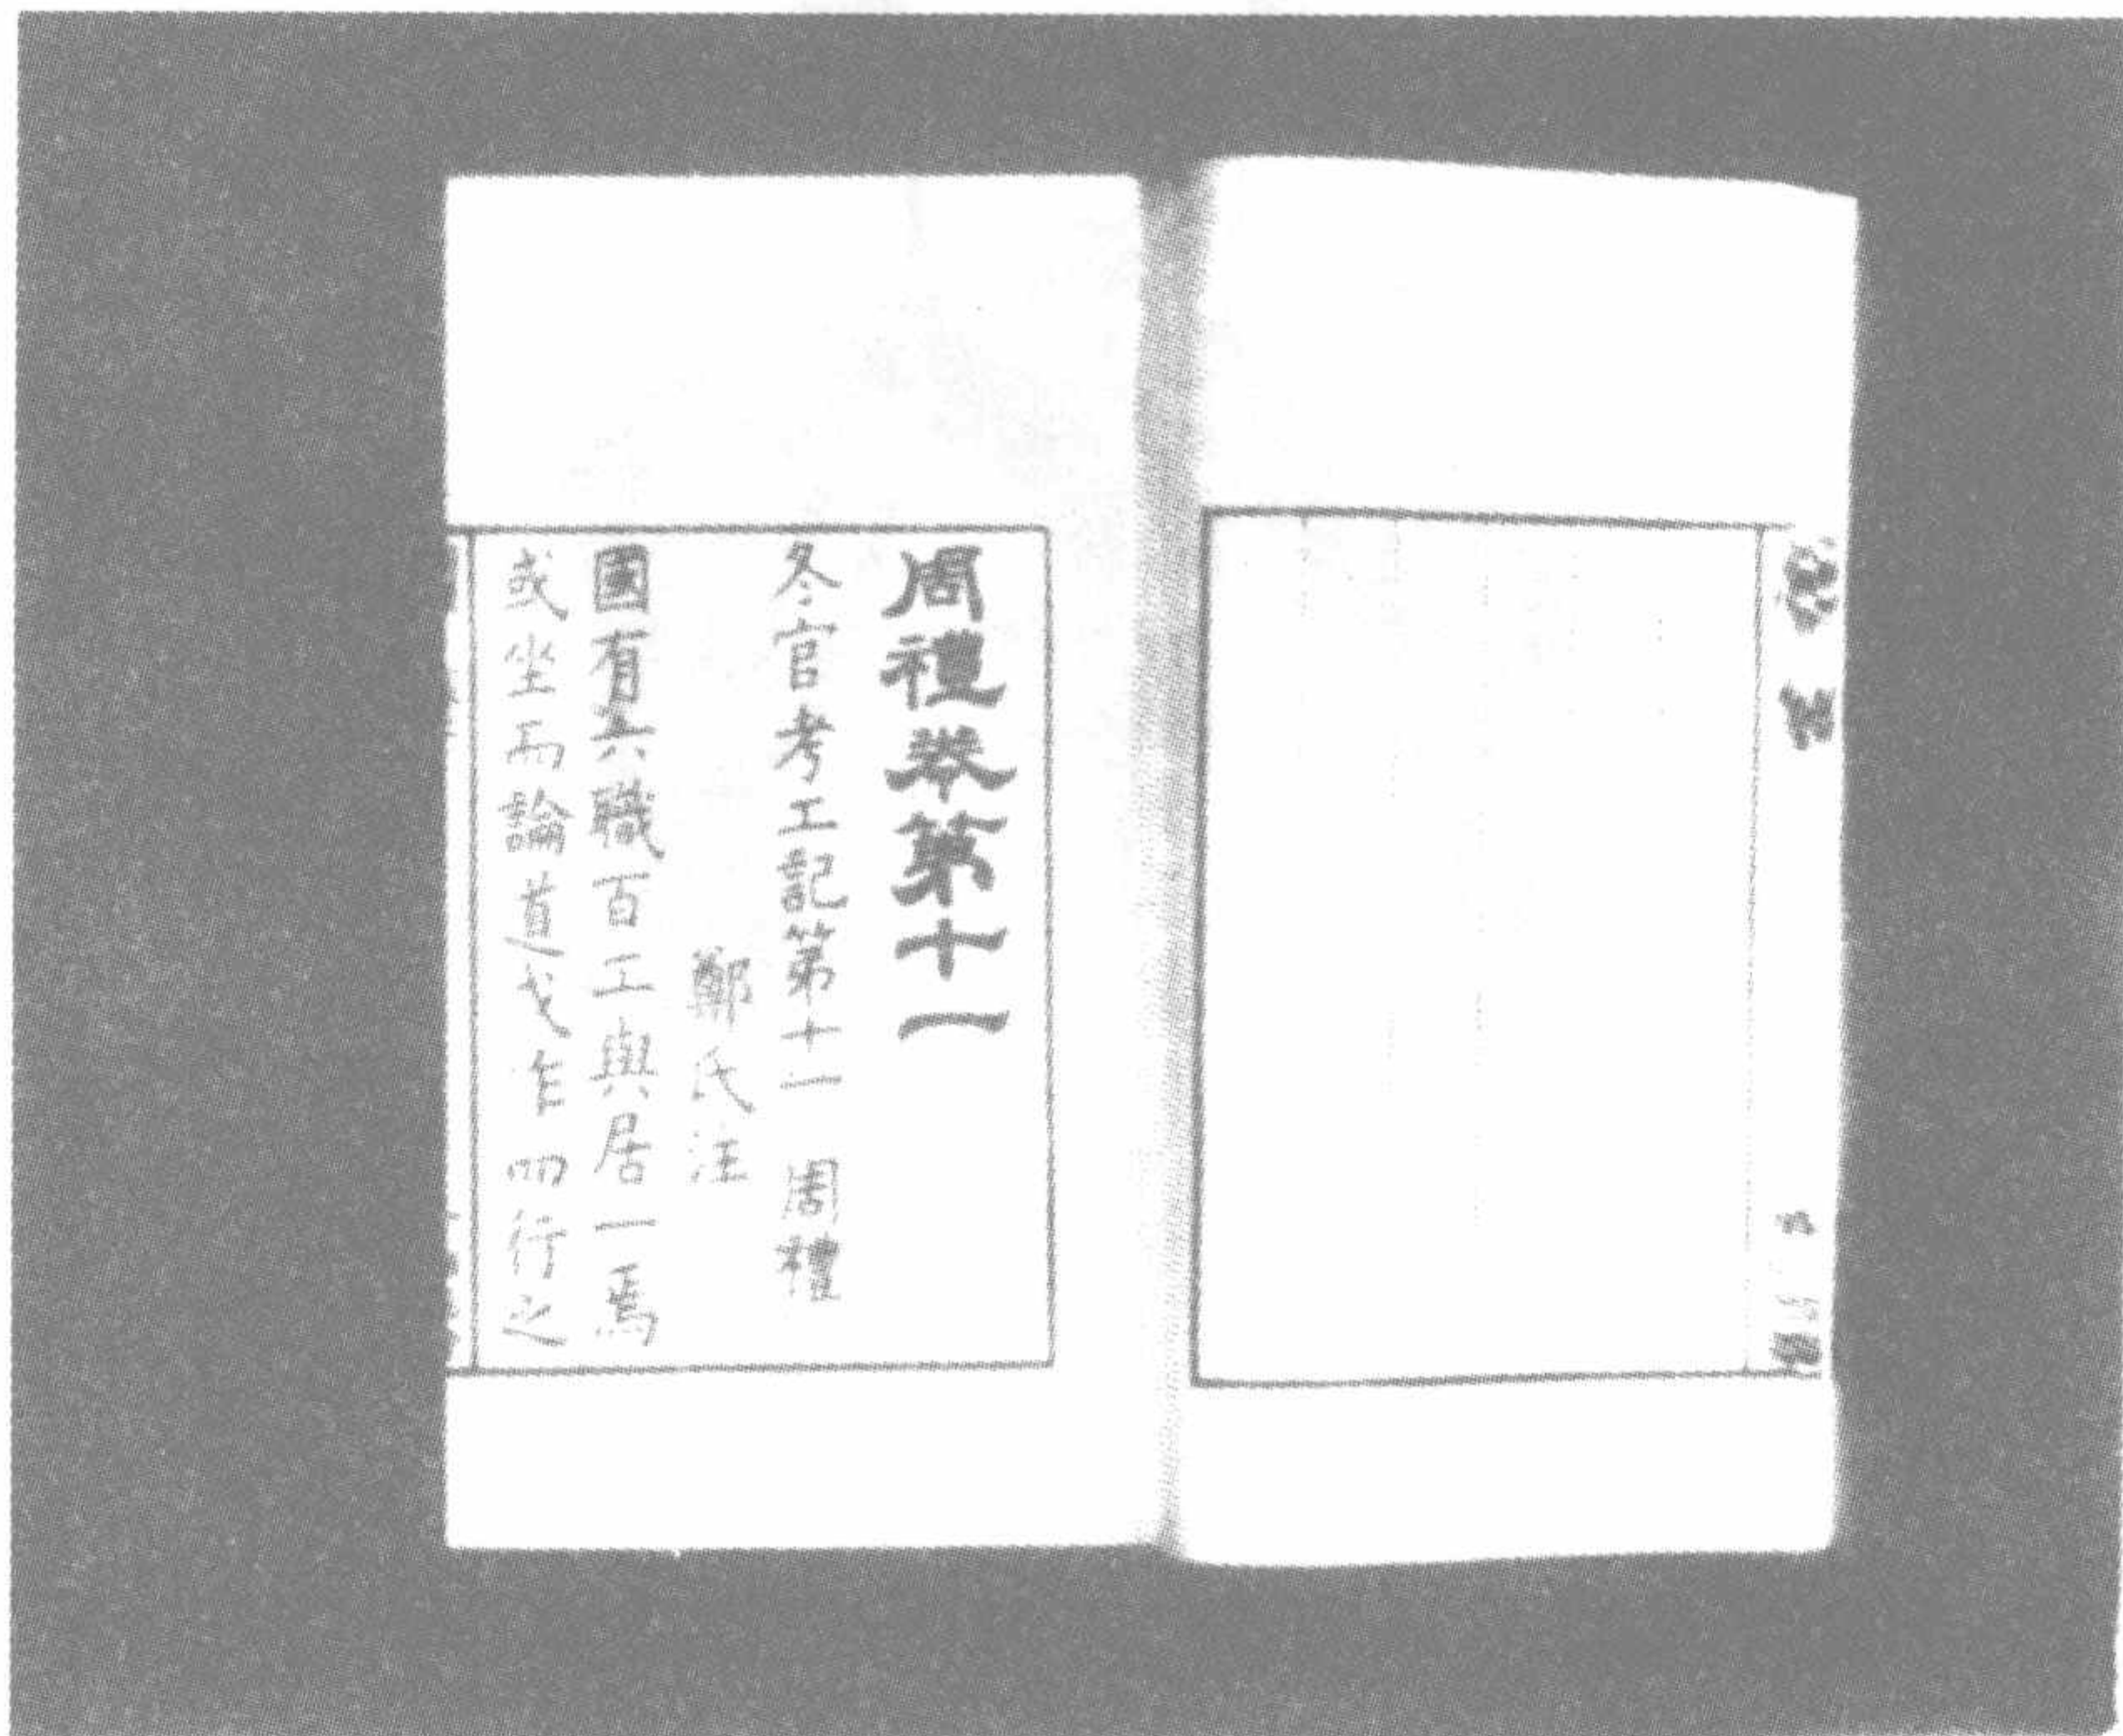 周禮卷第十一
冬官考工記第十一 周禮
鄭氏注
國有六職百工與居一焉
或坐而論道或作而行之